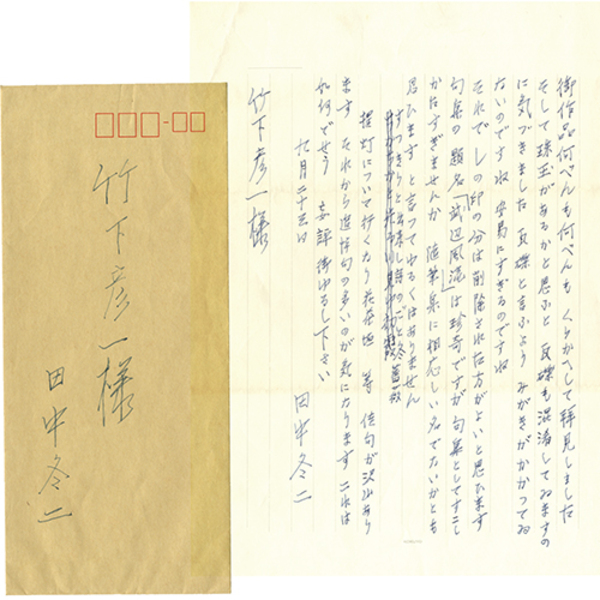 竹下彦一様
田中冬二
御作品何べんも何べんもくりかへして拝見しました
そして珠玉があるかと思ふと 瓦礫も混淆してゐますの
に気づきました 瓦礫と言ふより みがきがかかつてゐ
ないのですね 安易にすぎるのですね
それで レの印の分は削除された方がよいと思ひます
句集の題名「 」は珍奇ですが 句集としてすこし
かたすぎませんか 随筆集に相応しい名でないかとも
思ひます と言つてわるくはありません
提灯について行くなり 等 佳句が沢山あり
ます それから 句の多いのが気になります これは
如何でせう 妄評御ゆるし下さい
九月二十三日
田中冬二
竹下彦一様